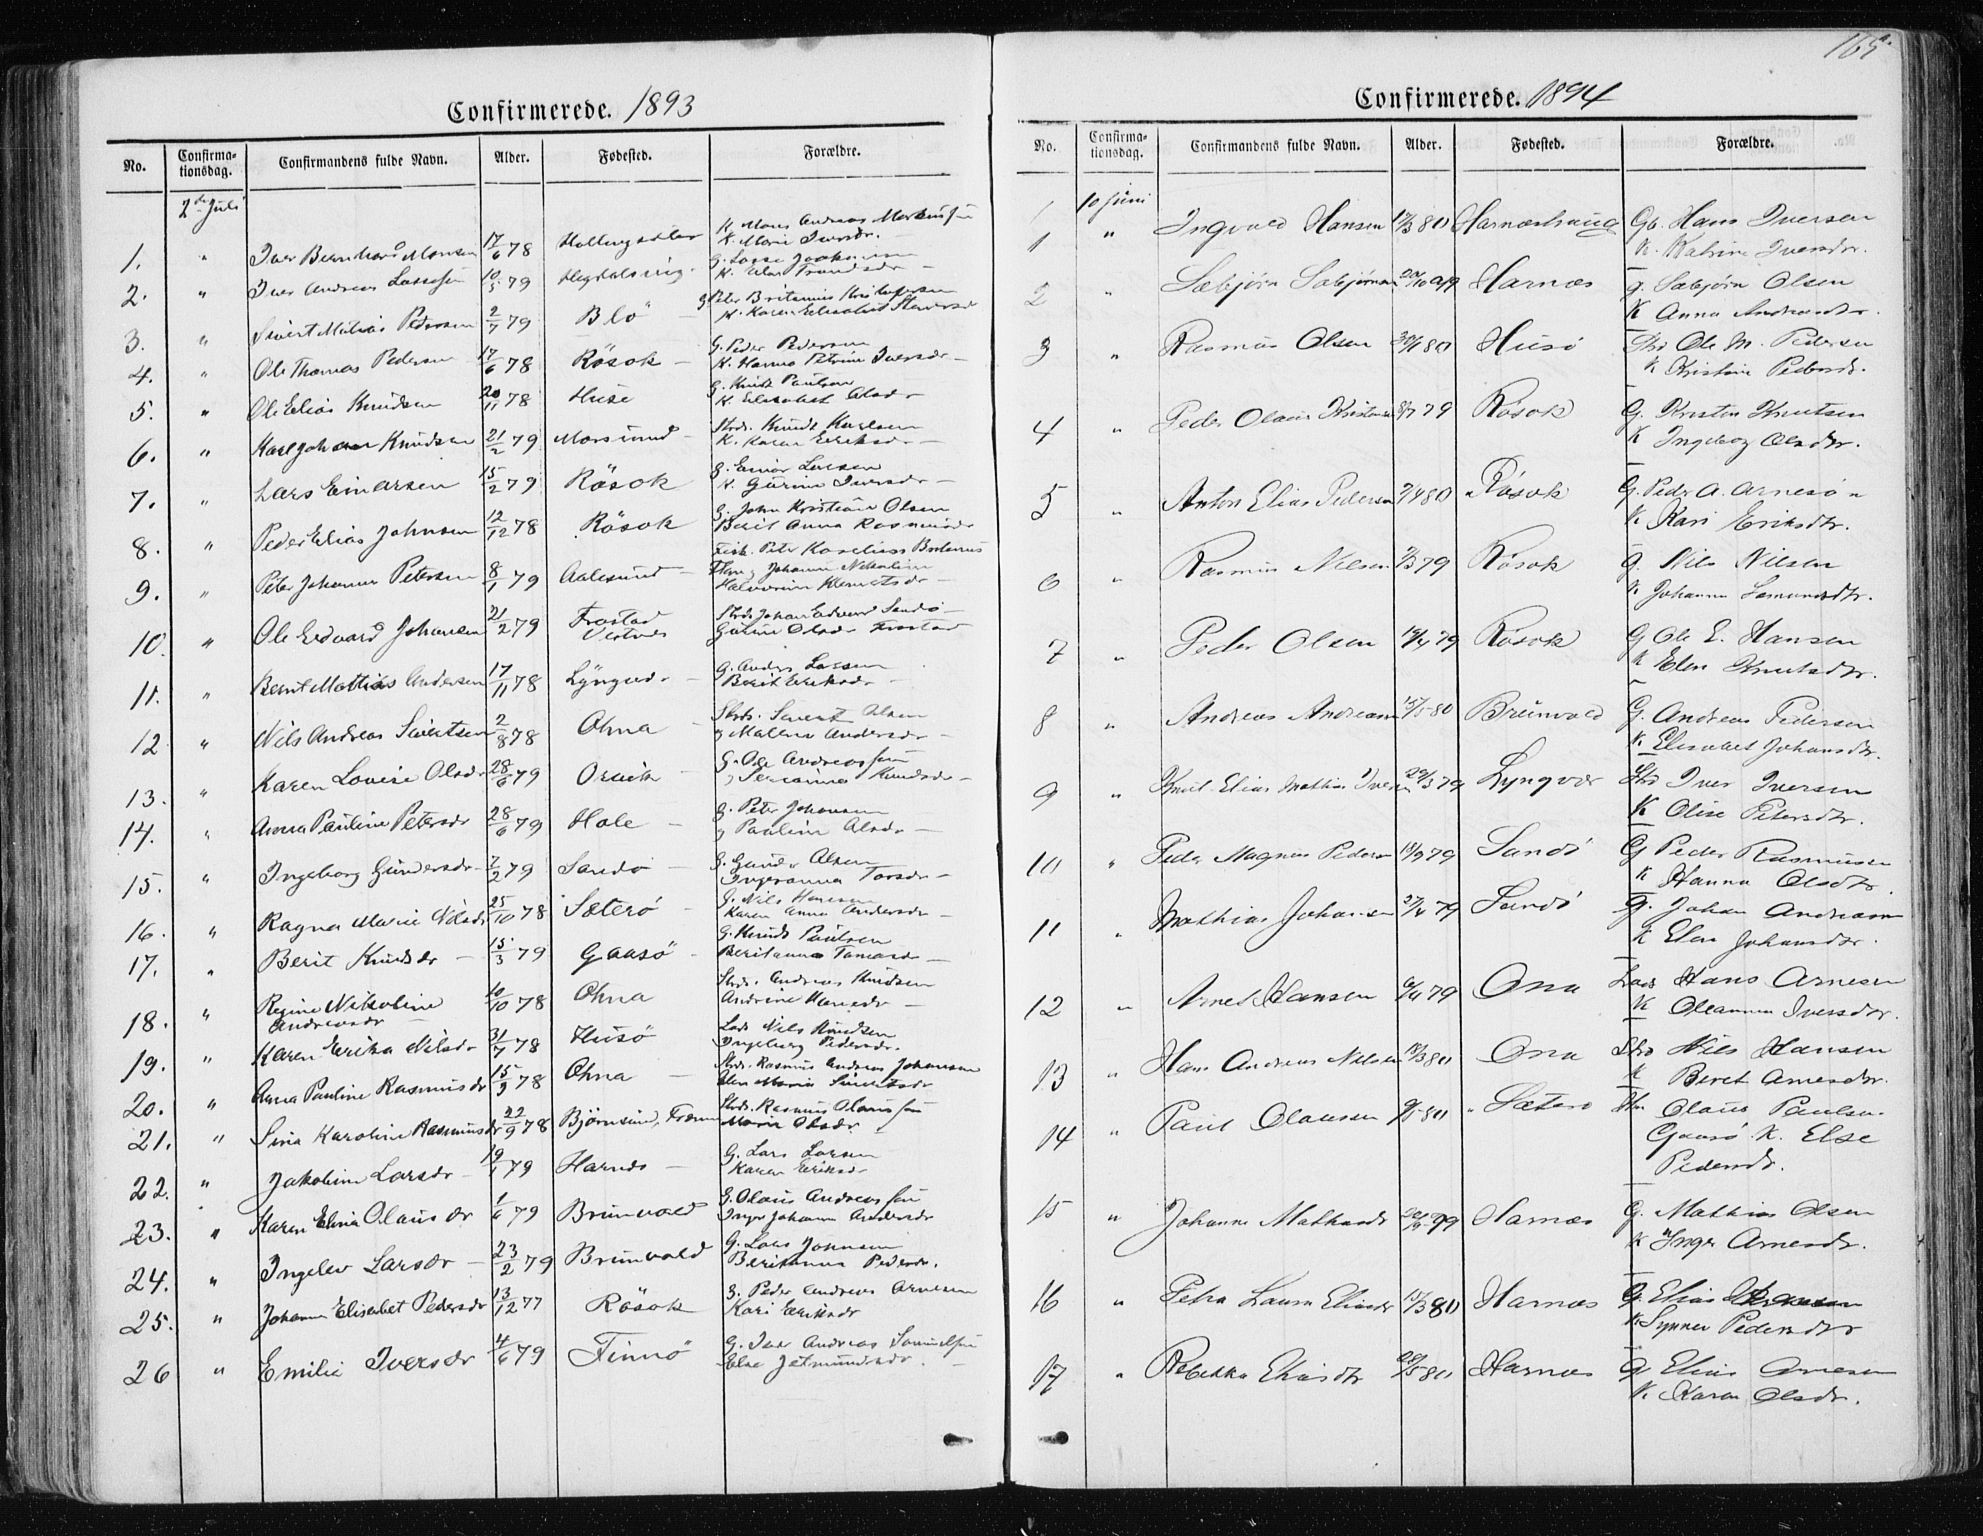 165.
Confirmerede. 1893
No. Confirma-tionsdag. Confirmandens fulde Navn. Alder. Fødested. Forældre.
2den Juli
1. " Iver Bernhard Monsen 17/6 78 K. Mons Andreas Markussen
K. Marie Iversdr. —
2. " Iver Andreas Lassesen 10/5 79 G. Lasse
K. Elen Trondsdr —
3. " Sivert Matias Pedersen 2/7 79 Blö — G Peter Britanius Kristofersen
K. Karen Elisabet
4. " Ole Thomas Pedersen 17/6 78 Rösok — G. Peder Pedersen
K. Hanna Petrine Iversdr —
5. " Ole Elias Knudsen 20/11 78 Huse G. Knud Paulsen
K. Elisabet Olsdr —
6. " Karl Johan Knudsen 21/2 79 Morsund — Strds. Knud Karlsen
K. Karen Eriksdr —
7. " Lars Einarsen 15/2 79 Rösok G. Einar Larsen
K. Gurine Iversdr —
8. " Peder Elias Johnsen 12/12 78 Rösok G. John Kristian Olsen
Berit Anna Rasmusdr
9. " Peter Johannes Petersen 8/1 79 Aalesund — Fisk. Peter
Johanne Nikoline
Klemetsdr —
10. " Ole Edvard Johansen 21/2 79 Frostad
Vestnes Strds Johan Edvard Sandö —
Gurine Olsdr Frostad
11. " Bernt Mathias Andersen 17/11 78 Lyngvær — G. Anders Lassen
Berit Eriksdr —
12 " Nils Andreas Sivertsen 2/8 78 Ohna — Strds. Sivert Olsen
g Malene Andersdr —
13. " Karen Lovise Olsdr 28/6 79 Orvik — G. Ole Andreassen
g Knudsdr —
14. " Anna Pauline Petersdr 28/6 79 Hole — G. Peter Johansen
g Pauline Olsdr —
15. " Ingeborg Gundersdr — 7/2 79 Sandö — G. Gunder Olsen
Ingeranna Torsdr —
16. " Ragna Marie Nilsdr 25/10 78 Sæterö — G. Nils Hansen
Karen Anna Andersdr —
17. " Berit Knudsdr — 15/3 79 Gaasö — G. Knud Paulsen
Beritanna Tomasdr —
18. " Regine Nikoline
Andreasdr — 10/10 78 Ohna Strds. Andreas Knudsen
Andrine Hansdr —
19. " Karen Erika Nilsdr 31/7 78 Husö Lods Nils Knudsen
Ingeborg Pedersdr.
20. " Anna Pauline Rasmusdr 15/9 78 Ohna — Strds. Rasmus Andreas Johansen
Elen Marie Sivertsdr
21. " Sina Karoline Rasmusdr 22/9 78 Björnsund, Fræna Strds. Rasmus Olaussen
Marie Olsdr —
22. " Jakobine Larsdr — 19/1 79 Harnes — G. Lars Larsen
Karen Eriksdr
23. " Karen Elina Olausdr 1/6 79 Brunvold G. Olaus Andreassen
Inger Johanne Andersdr
24. " Ingelev Larsdr — 23/2 79 Brunvold G. Lars Johnsen
Beritanna Pedersdr.
25. " Johanne Elisabet Pedersdr 13/12 77 Rösok G. Peder Andreas Arnesen
Kari Eriksdr
26 " Emilie Iversdr 4/6 79 Finnö G. Iver Andreas Samuelsen
Else Jetmundsdr. —
Confirmerede. 1894
No. Confirma-tionsdag. Confirmandens fulde Navn. Alder. Fødested. Forældre.
10 Juni
1 " Ingvald Hansen 17/3 80 Harneshaug Gb. Hans Iversen
K. Katrine Iversdr.
2 " Sæbjørn Sæbjørnsen 20/10 79 Harnæs G. Sæbjørn Olsen
K Anna Andreasdr.
3 " Rasmus Olsen 30/1 80 Husö Str Ole M. Pedersen
K Kristine Pedersdr.
4 " Peder Olaus Kristensen 8/7 79 Rösok G. Kristen Knutsen
K Ingeborg Olsdtr.
5 " Anton Elias Pedersen 2/4 80 Rösok G. Peder A. Arnesön
K Kari Eriksdtr.
6 " Rasmus Nilsen 2/3 79 Rösok G. Nils Nilsen
K Johanne
7 " Peder Olsen 19/4 79 Rösok G Ole E. Hansen
K Elen Knutsdtr.
8 " Andreas Andreasen 15/5 80 Brunvold G. Andreas Pedersen
K. Elisabet Johansdr.
9 " Knut Elias Mathias Iversen 29/3 79 Lyngvær Str Iver Iversen
K Olise Petersdtr.
10 " Peder Magnus Pedersen 19/9 79 Sandö G Peder Rasmusen
K Hanna Olsdtr.
11 " Mathias Johansen 27/4 79 Sandö G. Johan Andreasen
K Elen Johansdtr.
12 " Arnet Hansen 6/4 79 Ona Lods Hans Arnesen
K Oleanna Iversdtr.
13 " Hans Andreas Nilsen 19/3 80 Ona Str Nils Hansen
K Beret Arnesdtr.
14 " Paul Olausen 9/5 80 Sæterö Str Olaus Paulsen
Gaasö K. Else
Pedersdr.
15 " Johanne Mathiasdr 79 Harnæs G. Mathias Olsen
K Inger Arnesdr.
16 " Petra Laura Eliasdr 17/3 80 Harnæs G. Elias
K Synner Pedersdtr
17 " Rebekka Eliasdtr 28/5 80 Harnæs G Elias Arnesen
K. Karen Olsdr.